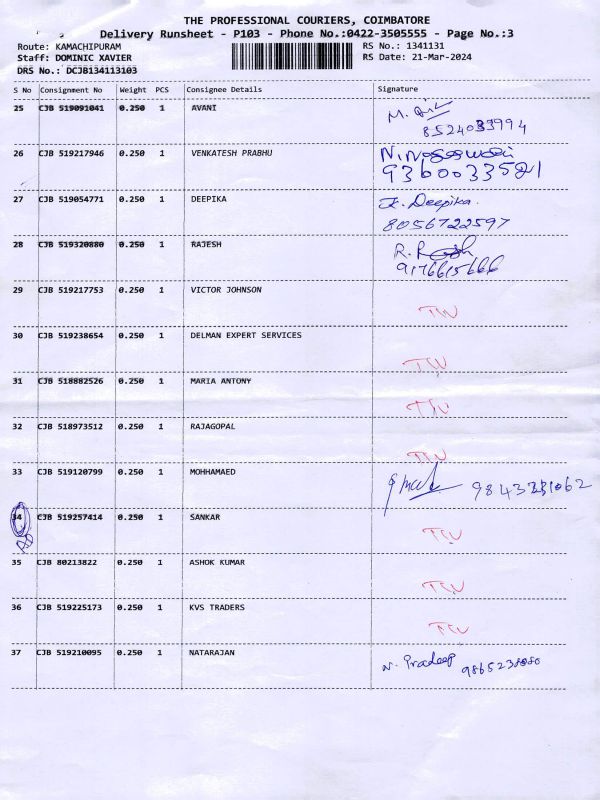 THE PROFESSIONAL COURIERS, COIMBATORE
Delivery Runsheet - P103 - Phone No.:0422-3505555 - Page No.:3
Route: KAMACHIPURAM
RS No.: 1341131
Staff: DOMINIC XAVIER
RS Date: 21-Mar-2024
DRS No.: DCJB134113103
S No Consignment No Weight PCS Consignee Details Signature
25 CJB 519091041 0.250 1 AVANI
8524033994
26 CJB 519217946 0.250 1 VENKATESH PRABHU
9360033521
27 CJB 519054771 0.250 1 DEEPIKA Deepika.
8056722597
28 CJB 519320880 0.250 1 RAJESH
9176615666
29 CJB 519217753 0.250 1 VICTOR JOHNSON
30 CJB 519238654 0.250 1 DELMAN EXPERT SERVICES
31 CJB 518882526 0.250 1 MARIA ANTONY
32 CJB 518973512 0.250 1 RAJAGOPAL
33 CJB 519120799 0.250 1 MOHHAMAED
34 CJB 519257414 0.250 1 SANKAR
35 CJB 80213822 0.250 1 ASHOK KUMAR
36 CJB 519225173 0.250 1 KVS TRADERS
37 CJB 519210095 0.250 1 NATARAJAN N. Pradeep